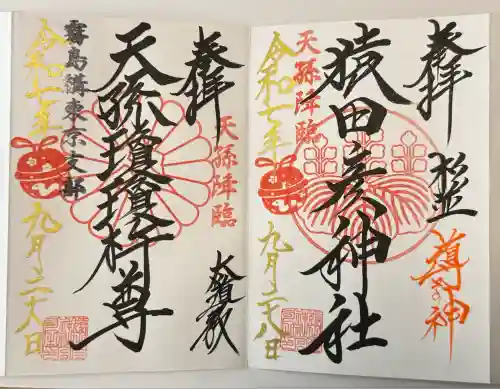 奉拝
松並
猿田彦神社
天孫降臨
令和七年
九月二十八日
奉拝
天孫降臨
天孫瓊瓊杵尊
霧島講東京支部
令和七年
九月二十八日